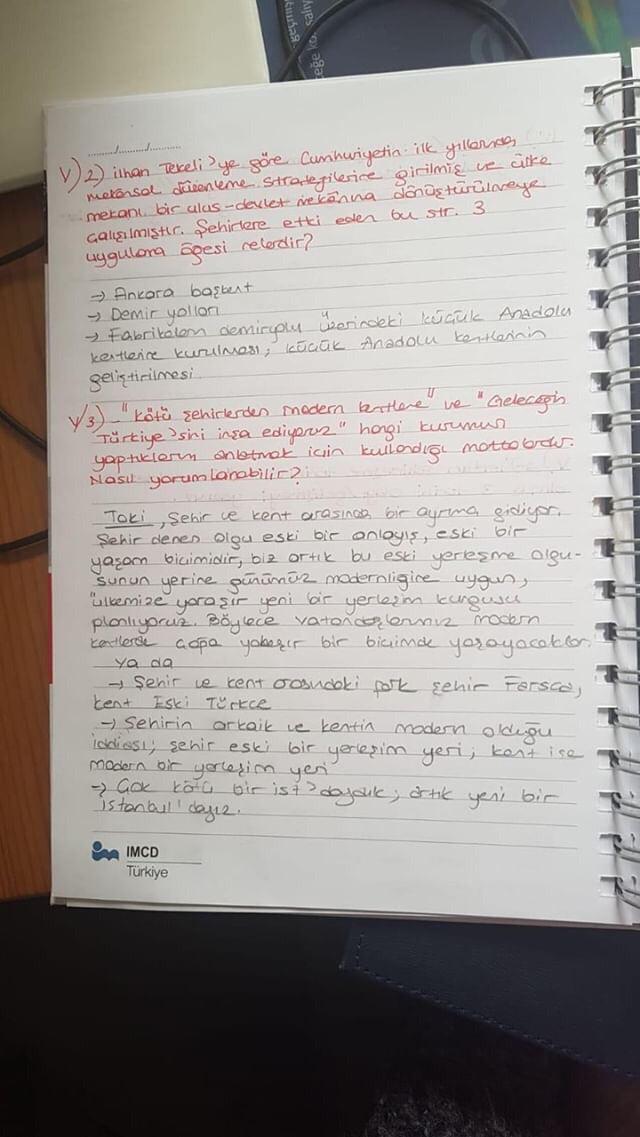 eğe ko
...../...../.....
V) 2) ilhan Tekeli'ye göre Cumhuriyetin ilk yıllarında,
mekansal düzenleme stratejilerine girilmiş ve ülke
mekanı bir ulus-devlet mekânına dönüştürülmeye
çalışılmıştır. Şehirlere etki eden bu str. 3
uygulama öğesi nelerdir?
→ Ankara başkent
→ Demir yolları
→ Fabrikaların demiryolu üzerindeki küçük Anadolu
kentlerine kurulması, küçük Anadolu kentlerinin
geliştirilmesi
V 3) "kötü şehirlerden modern kentlere" ve "Geleceğin
Türkiye'sini inşa ediyoruz" hangi kurumun
yaptıklarını anlatmak için kullandığı mottolardır.
Nasıl yorumlanabilir?
Toki, şehir ve kent arasında bir ayrıma gidiyor.
Şehir denen olgu eski bir anlayış, eski bir
yaşam biçimidir, biz artık bu eski yerleşme olgu-
sunun yerine günümüz modernliğine uygun,
ülkemize yaraşır yeni bir yerleşim kurgusu
planlıyoruz. Böylece vatandaşlarımız modern
kentlerde çağa yakışır bir biçimde yaşayacaklar.
ya da
→ Şehir ve kent arasındaki fark şehir Farsça,
kent Eski Türkçe
→ Şehirin arkaik ve kentin modern olduğu
iddiası; şehir eski bir yerleşim yeri, kent ise
modern bir yerleşim yeri
→ Çok kötü bir ist'daydık, artık yeni bir
İstanbul'dayız.
IMCD
Türkiye